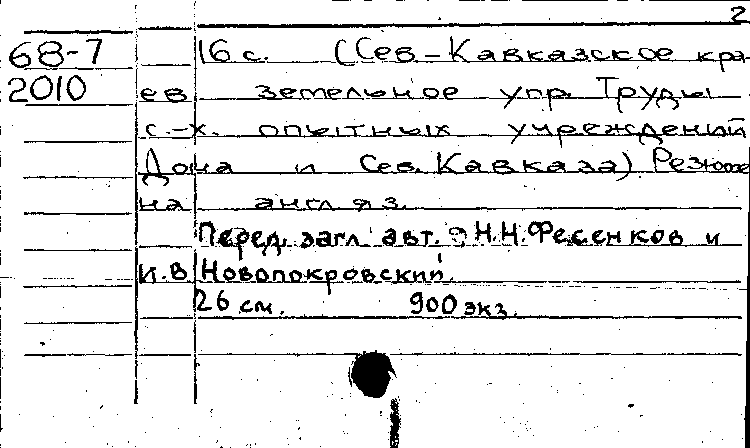 2
68-7 16 с. (Сев-Кавказское кра-
2010 ев земельное упр. Труды
с.-х. опытных учреждений
Дона и Сев. Кавказа) Резюме
на англ яз.
Перед. загл. авт.: Н.Н.Фесенков и
И.В Новопокровский.
26 см. 900 экз.